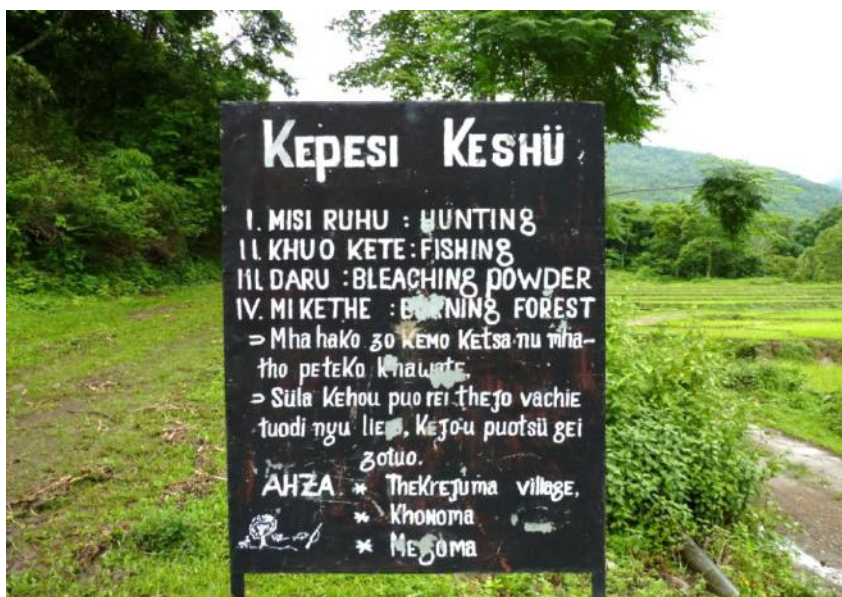 KEPESI KESHÜ
I. MISI RUHU : HUNTING
II. KHUO KETE : FISHING
III. DARU : BLEACHING POWDER
IV. MI KETHE : FOREST
⇒ Mha hako zo KEMO Ketsa nu mha-
tho peteko
⇒ Süla Kehou puo rei thejo vachie
tuodi ngu puotsü gei
zotuo.
AHZA * TheKrejuma village,
* Khonoma
* Mezoma